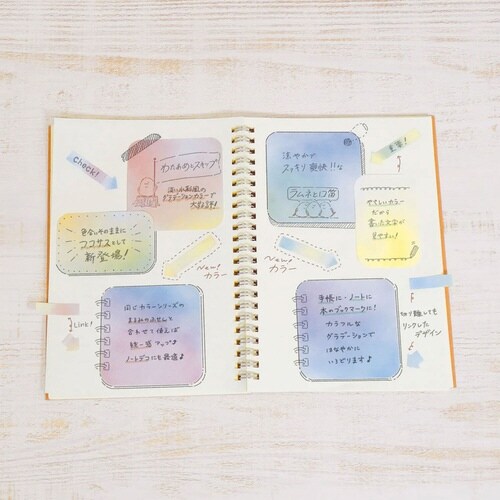 Check!
わたあめとスキップ
淡い水彩風の
グラデーションカラーで
大好評!
色合いそのままに
ココサスとして
新登場!
New!
カラー
Link!
同じカラーシリーズの
ふせんと
合わせて使えば
統一感アップ♪
ノートデコにも最適♪
涼やかで
スッキリ爽快!!な
ラムネと口笛
主張!
やさしいカラー
だから
書いた文字が
見やすい!
New!
カラー
手帳に・ノートに
本のブックマークに!
カラフルな
グラデーションで
はなやかに
いろどります♪
切り離しても
リンクした
デザイン